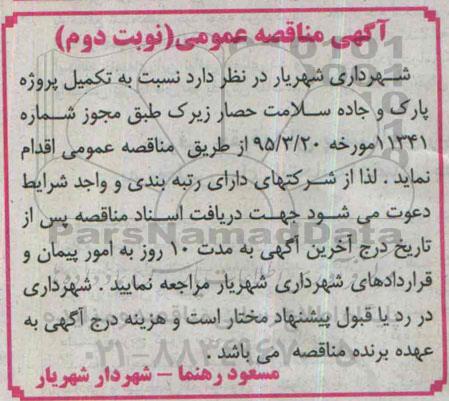 آگهی مناقصه عمومی(نوبت دوم)
شهرداری شهریار در نظر دارد نسبت به تکمیل پروژه
پارک و جاده سلامت حصار زیرک طبق مجوز شماره
۱۱۳۴۱مورخه ۹۵/۳/۲۰ از طریق مناقصه عمومی اقدام
نماید . لذا از شرکتهای دارای رتبه بندی و واجد شرایط
دعوت می شود جهت دریافت اسناد مناقصه پس از
تاریخ درج آخرین آگهی به مدت ۱۰ روز به امور پیمان و
قراردادهای شهرداری شهریار مراجعه نمایید . شهرداری
در رد یا قبول پیشنهاد مختار است و هزینه درج آگهی به
عهده برنده مناقصه می باشد .
مسعود رهنما – شهردار شهریار
ParsNamadData